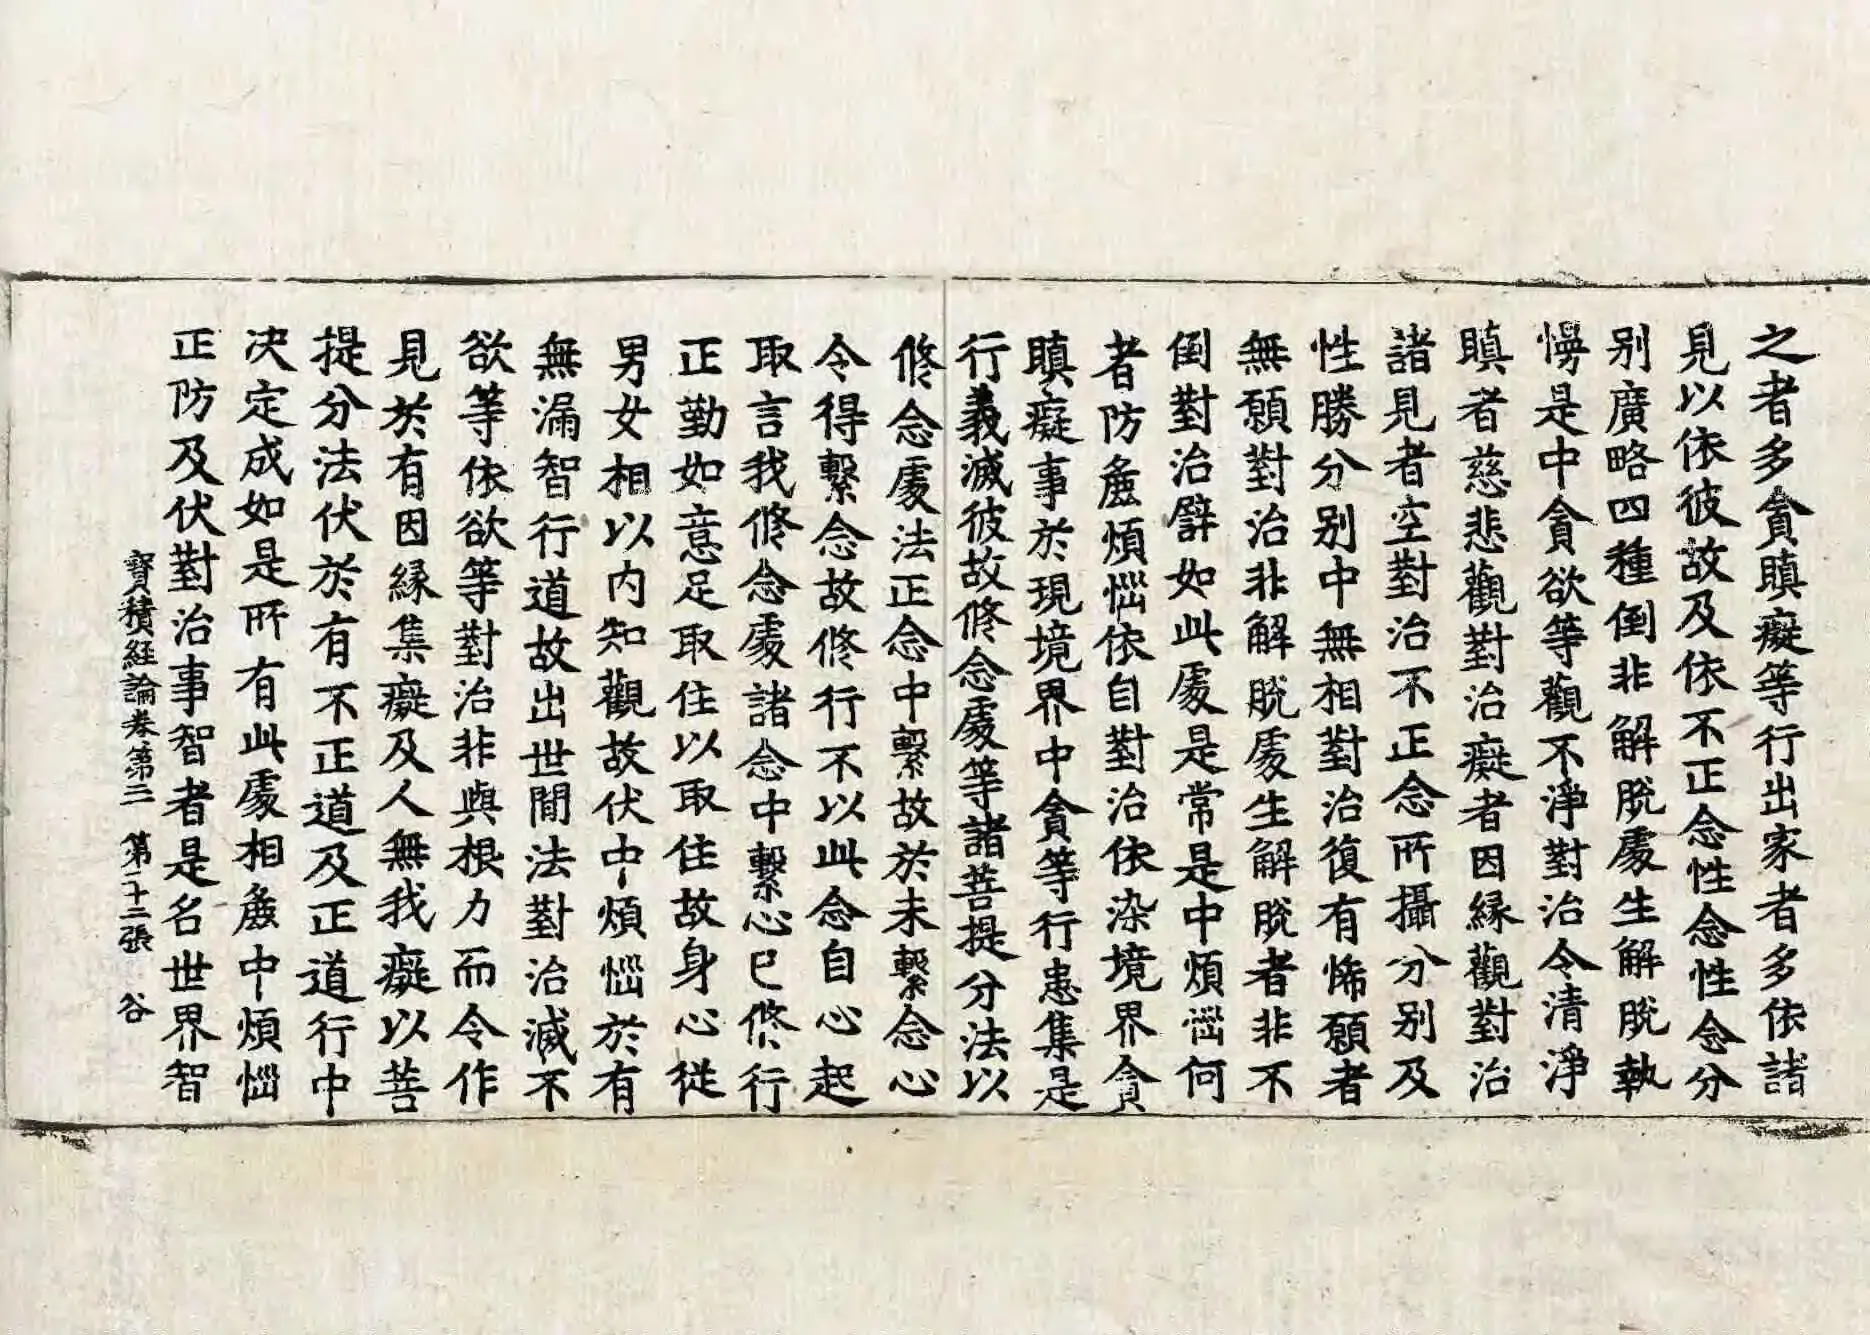 之者多貪瞋癡等行出家者多依諸
見以依彼故及依不正念性念性念分
别廣略四種倒非解脱處生解脱執
慢是中貪欲等觀不淨對治令清淨
瞋者慈悲觀對治癡者因縁觀對治
諸見者空對治不正念所攝分别及
性勝分别中無相對治復有悕願者
無願對治非解脱處生解脱者非不
倒對治譬如此處是常是中煩惱何
者防麁煩惱依自對治依染境界貪
瞋癡事於現境界中貪等行恚集是
行義滅彼故修念處等諸菩提分法以
修念處法正念中繫故於未繫念心
令得繫念故修行不以此念自心起
取言我修念處諸念中繫心已修行
正勤如意足取住以取住故身心從
男女相以内知觀故伏中煩惱於有
無漏智行道故出世間法對治滅不
欲等依欲等對治非與根力而令作
見於有因縁集癡及人無我癡以菩
提分法伏於有不正道及正道行中
决定成如是所有此處相麁中煩惱
正防及伏對治事智者是名世界智
寳積經論卷第三 第二十二張 谷